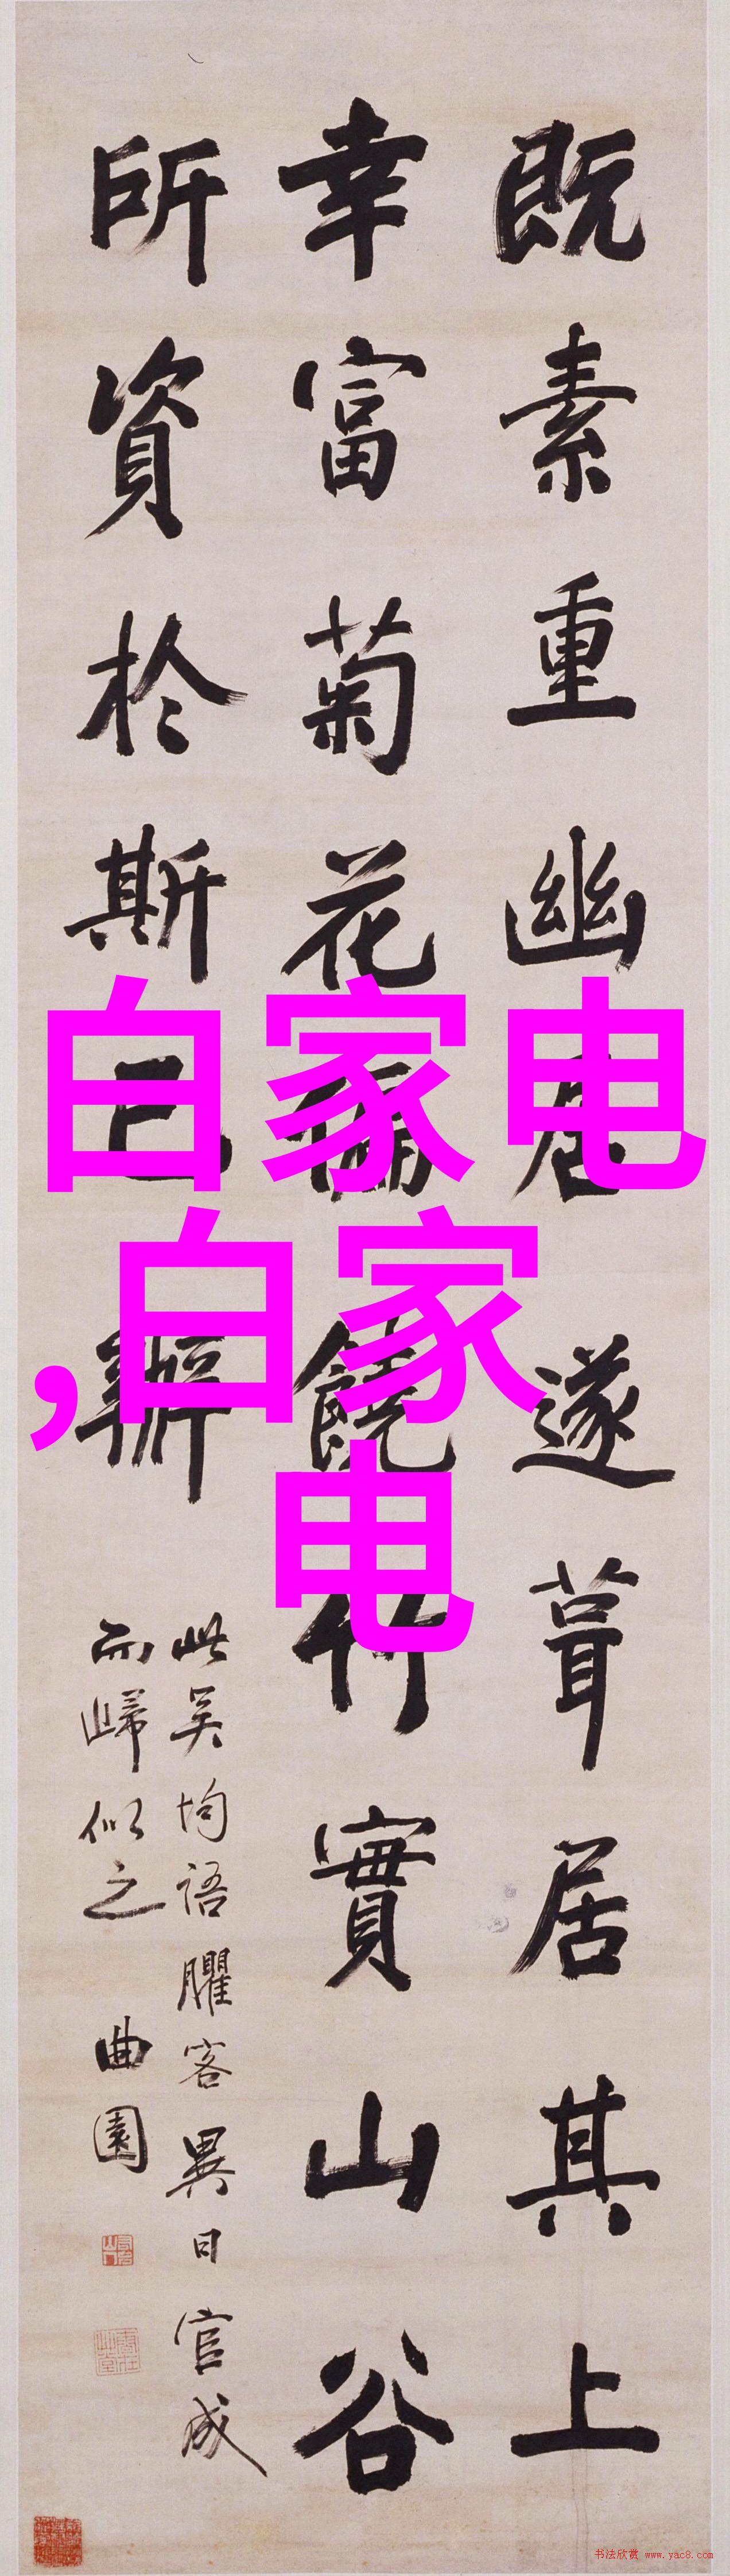 既素重幽居遂葺居其上
幸富菊花偏饒竹實山谷
所資於斯已辦
此吴均語臞客異日官成
而歸似之
曲園
白家电
,白家
电
书法欣赏 www.yac8.com